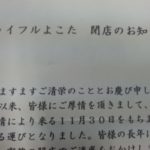 イフルよこた 閉店のお知
ますますご清栄のこととお慶び申し
以来、皆様にご厚情を頂きまして、
情により来る11月30日をもちま
る運びとなりました。皆様の長年に